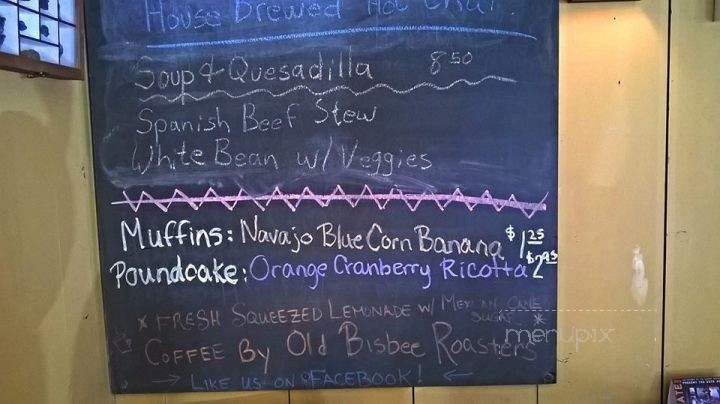 House Brewed Hot Chai!
Soup & Quesadilla 8.50
Spanish Beef Stew
White Bean w/ Veggies
Muffins: Navajo Blue Corn Banana $1.25
Poundcake: Orange Cranberry Ricotta $2.95
* FRESH SQUEEZED LEMONADE W/ MEXICAN CANE SUGAR *
COFFEE By Old Bisbee Roasters
→ LIKE US ON FACEBOOK! ←
menupix